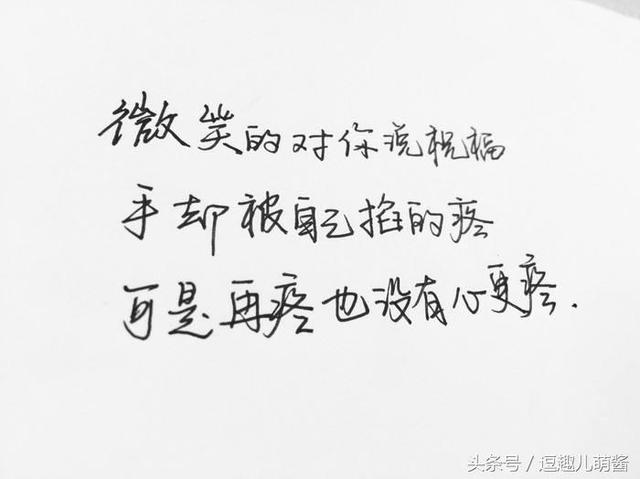 微笑的对你说祝福
手却被自己掐的疼
可是再疼也没有心更疼.
头条号/逗趣儿萌酱